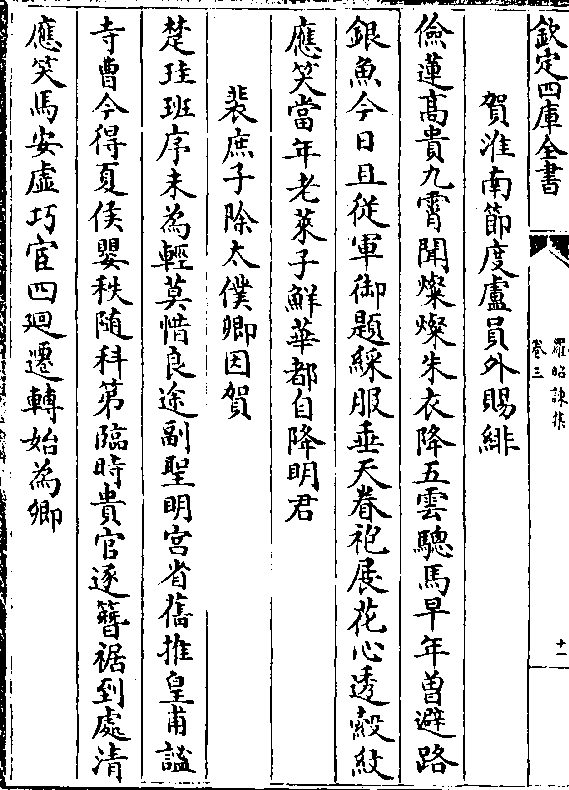 欽定四庫全書
羅昭諫集
卷三
十一
賀淮南節度盧員外賜緋
儉蓮髙貴九霄聞燦燦朱衣降五雲驄馬早年曽避路
銀魚今日且從軍御題綵服垂天眷袍展花心透縠紋
應笑當年老萊子鮮華都自降明君
裴庶子除太僕卿因賀
楚珪班序未為輕莫惜良途副聖明宫省舊推皇甫謐
寺曹今得夏侯嬰秩随科第臨時貴官逐簪裾到處清
應笑馬安虚巧宦四廻遷轉始為卿